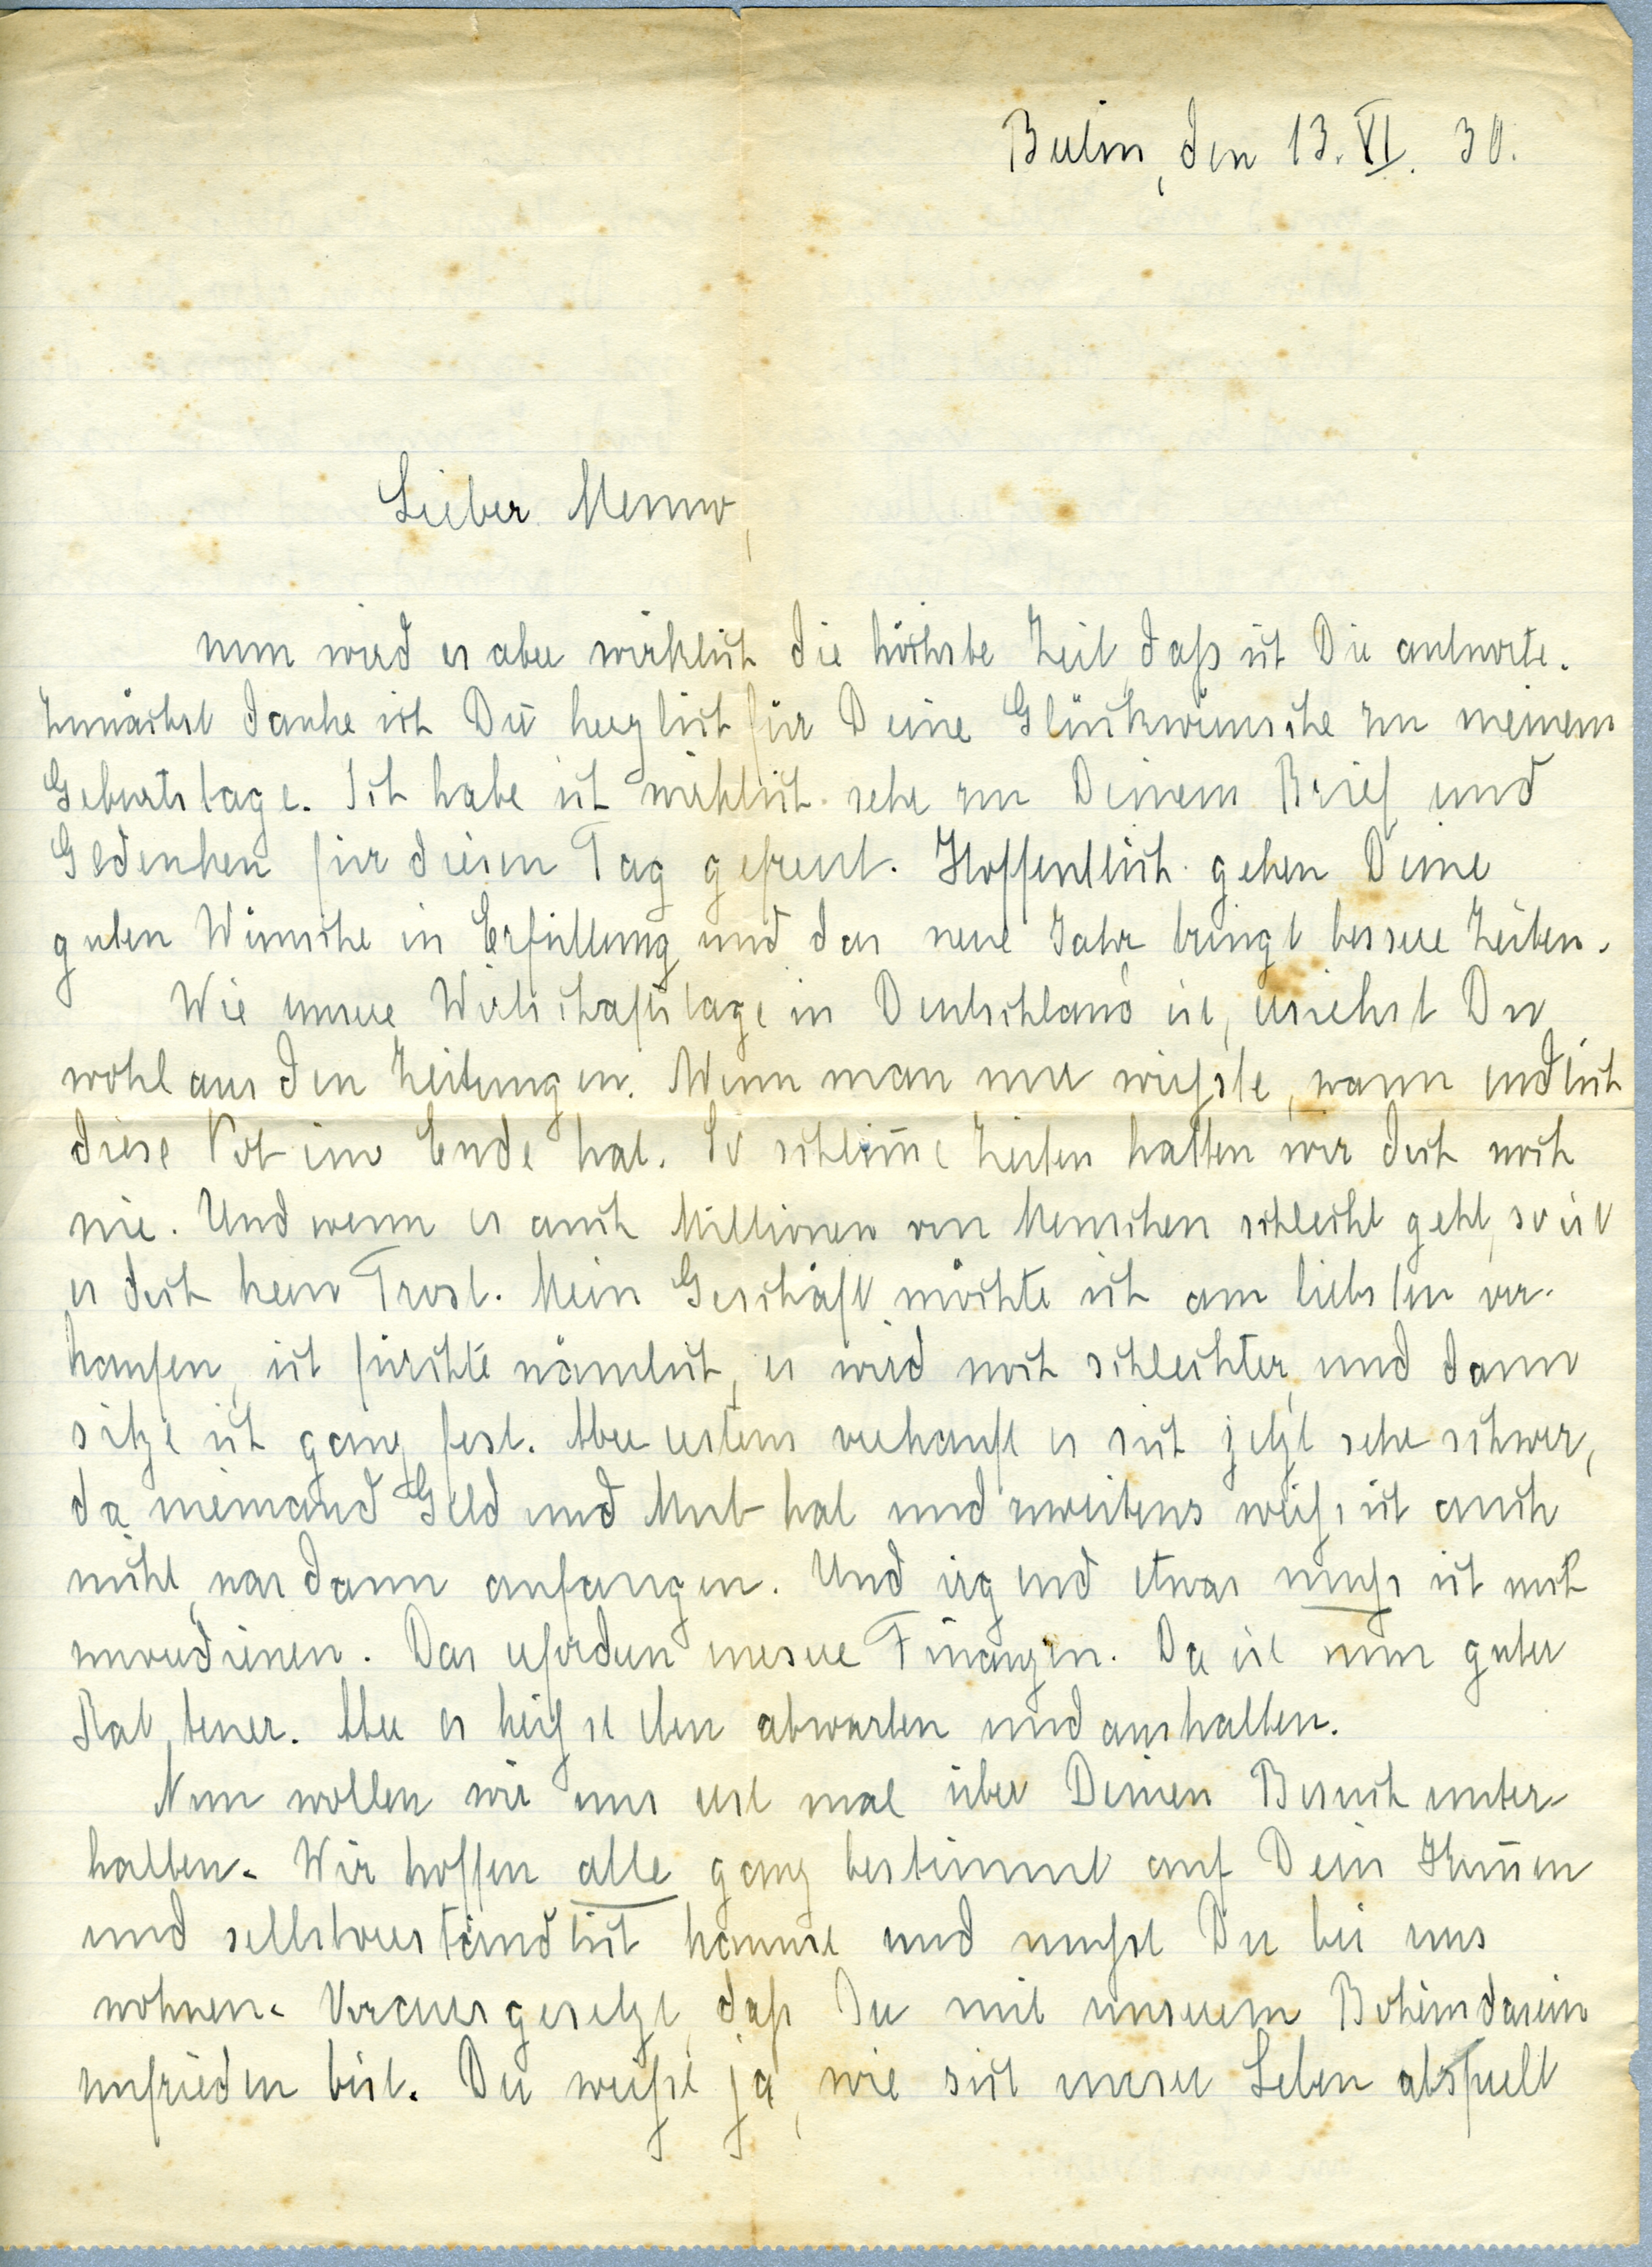 Berlin, den 13. VI. 30.
Lieber Menno,
nun wird es aber wirklich die höchste Zeit, daß ich Dir antworte.
Zunächst danke ich Dir herzlich für Deine Glückwünsche zu meinem
Geburtstage. Ich habe ich wirklich sehr zu Deinem Brief und
Gedenken für diesen Tag gefreut. Hoffentlich gehen Deine
guten Wünsche in Erfüllung und das neue Jahr bringt bessere Zeiten.
Wie unsere Wirtschaftslage in Deutschland ist, ersiehst Du
wohl aus den Zeitungen. Wenn man nur wüßte, wann endlich
diese Not ein Ende hat. So schlim̅e Zeiten hatten wir doch noch
nie. Und wenn es auch Millionen von Menschen schlecht geht, so ist
es doch kein Trost. Mein Geschäft möchte ich am liebsten ver-
kaufen, ich fürchte nämlich, es wird noch schlechter, und dann
sitze ich ganz fest. Aber erstens verkauft es sich jetzt sehr schwer,
da niemand Geld und Mut hat und zweitens weiß ich auch
nicht, was dann anfangen. Und irgend etwas muß ich mich
zuverdienen. Das erfordern unsere Finanzen. Da ist nun guter
Rat teuer. Aber es heißt eben abwarten und aushalten.
Nun wollen wir uns erst mal über Deinen Besuch unter-
halten. Wir hoffen alle ganz bestimmt auf Dein Kom̅en
und selbstverständlich kannst und mußt Du bei uns
wohnen. Vorausgesetzt, daß Du mit unserem Bohèmdasein
zufrieden bist. Du weißt ja, wie sich unser Leben abspielt